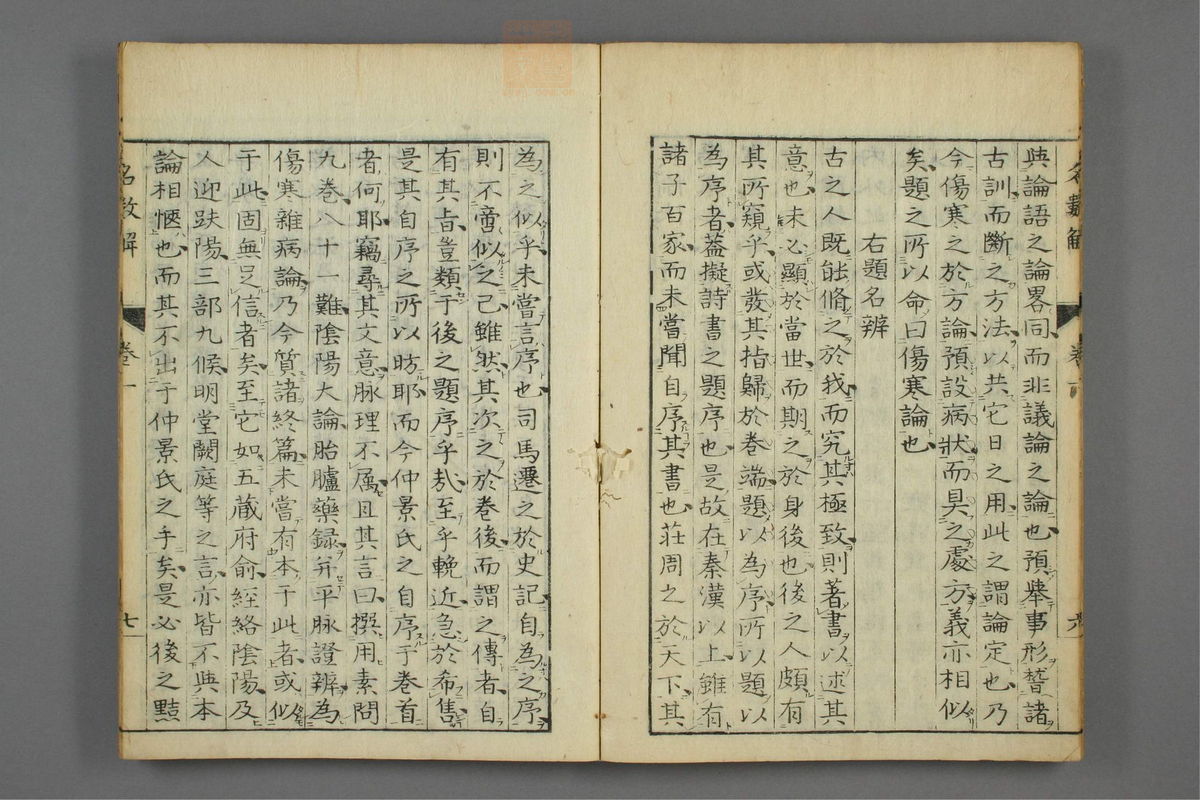 與論語之論畧同而非議論之論也預擧事形誓諸
古訓而斷之方法以共它日之用此之謂論定也乃
今傷寒之於方論預設病狀而具之處方義亦相似
矣題之所以命曰傷寒論也
右題名辨
古之人既能脩之於我而究其極致則著書以述其
意也未必顯於當世而期之於身後也後之人頗有
其所窺乎或發其指歸於卷端題以為序所以題以
為序者蓋擬詩書之題序也是故在秦漢以上雖有
諸子百家而未嘗聞自序其書也莊周之於天下其
為之似乎未嘗言序也司馬遷之於史記自為之序
則不啻似之已雖然其次之於卷後而謂之傳者自
有其旨豈類于後之題序乎哉至乎輓近急於衒售
是其自序之所以昉耶而今仲景氏之自序于卷首
者何耶竊尋其文意脉理不属且其言曰撰用素問
九卷八十一難陰陽大論胎臚藥録并平脉證辨為
傷寒雜病論乃今質諸終篇未嘗有本于此者或似
于此固無足信者矣至它如五蔵府俞經絡陰陽及
人迎趺陽三部九候明堂闕庭等之言亦皆不與本
論相愜也而其不出于仲景氏之手矣是必後之黠
名數解
卷一
七